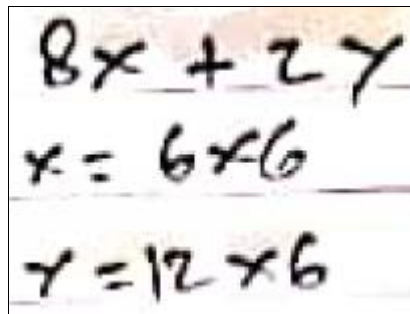 8x + 2y
x = 6x6
y = 12x6